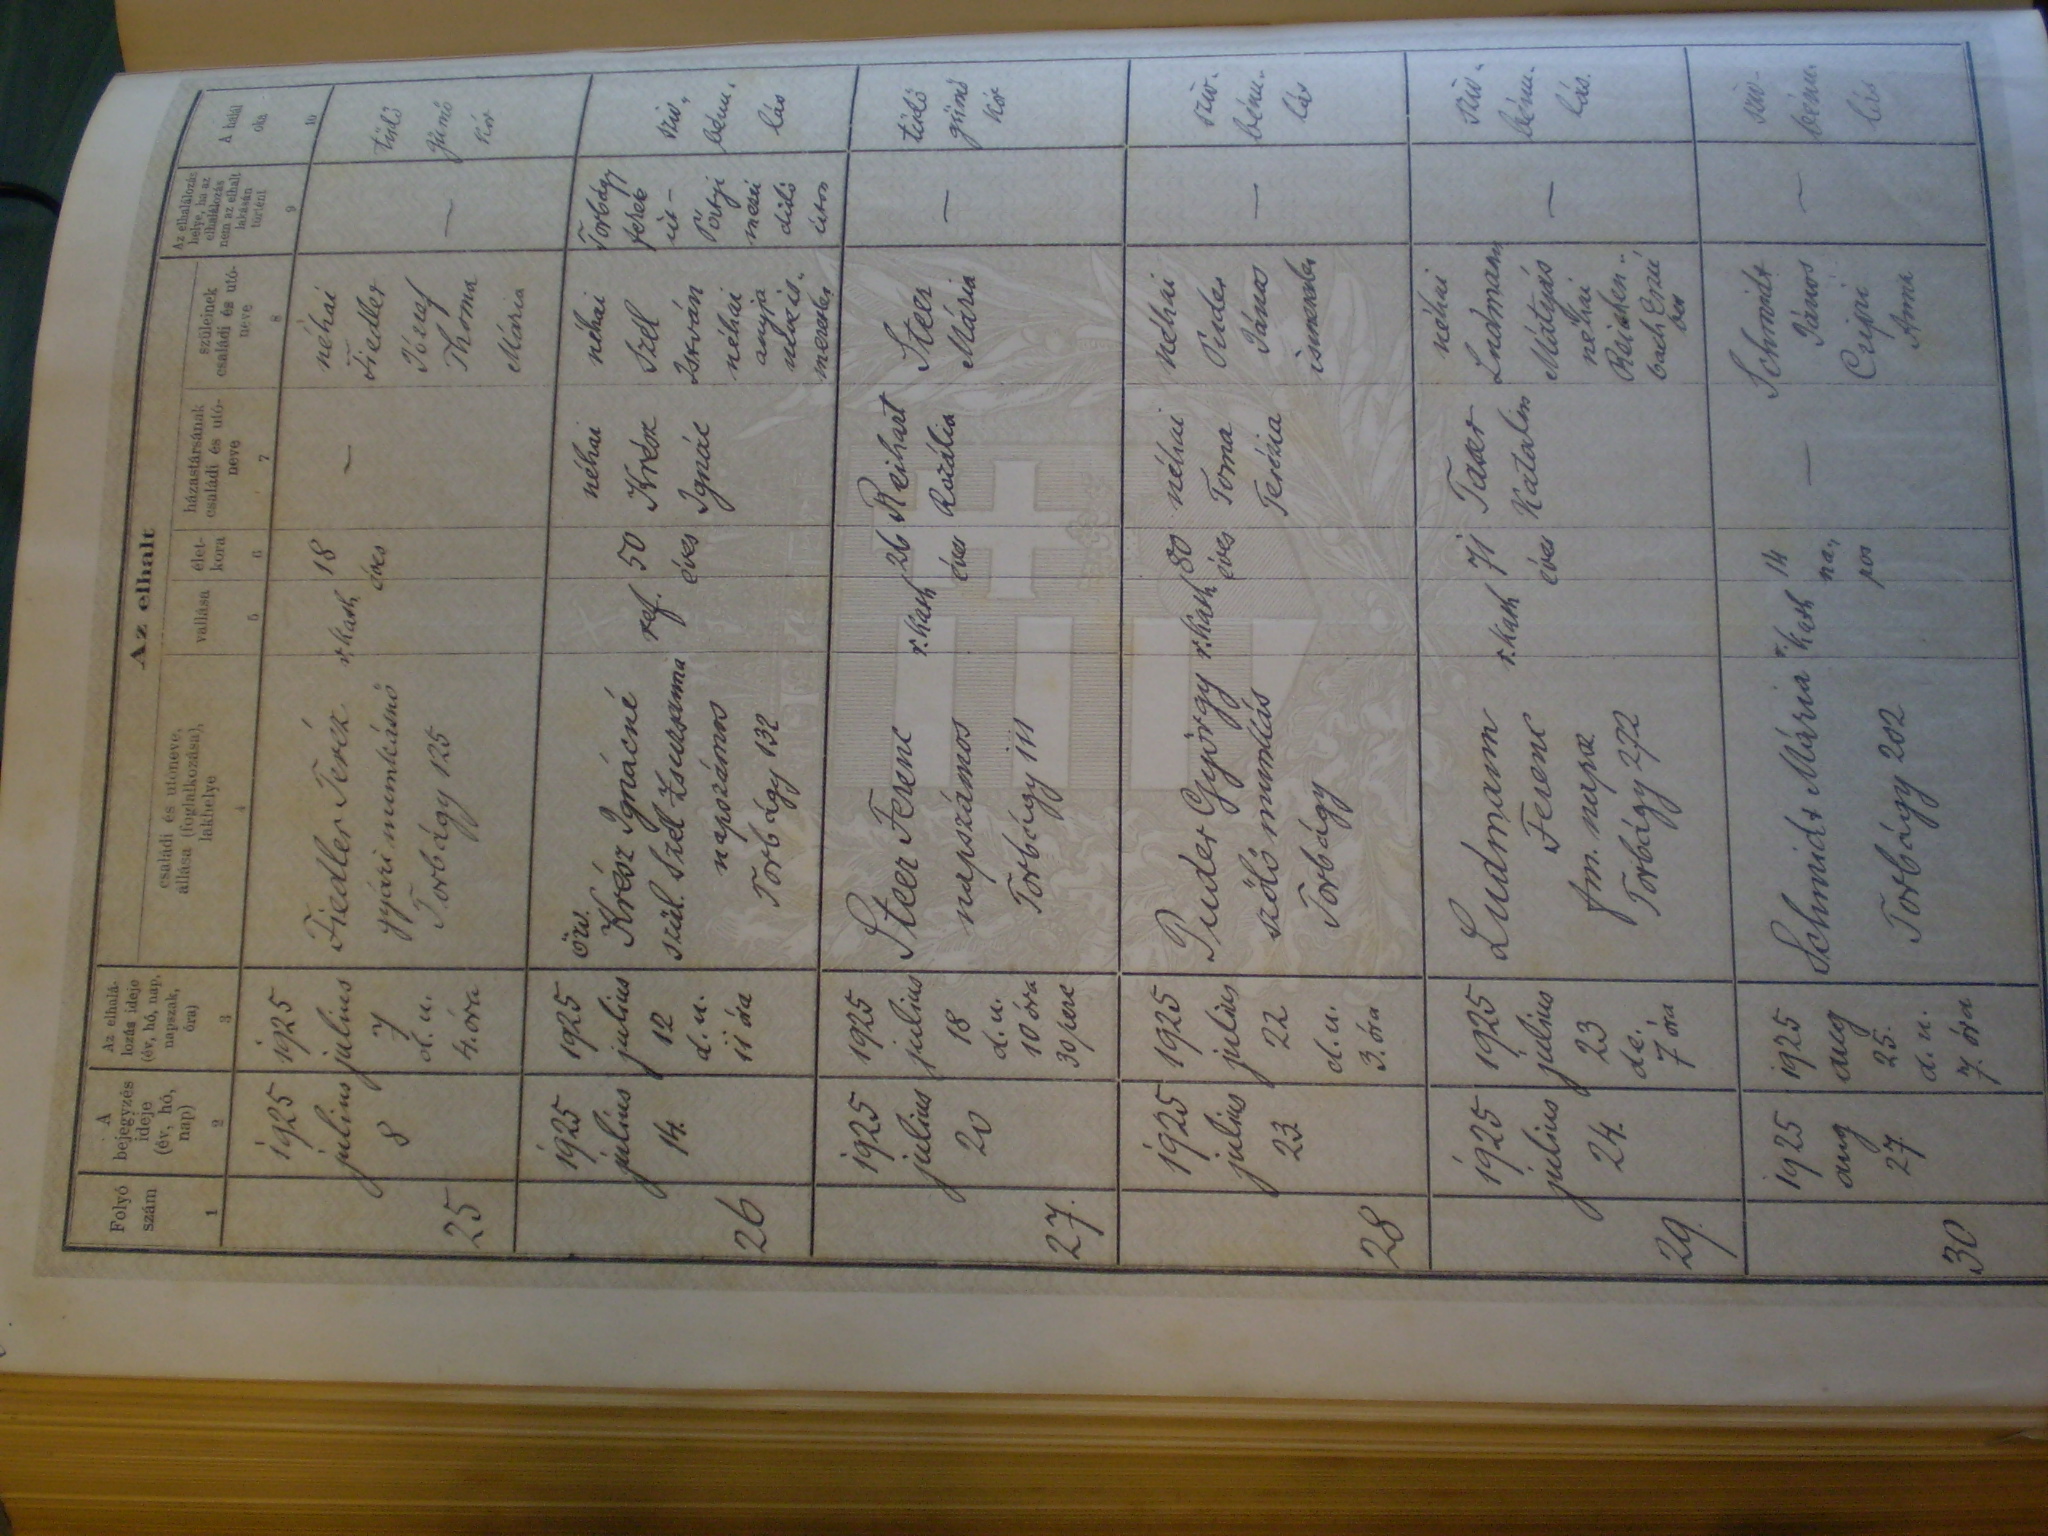 Az elhalt
Folyó
szám
A
bejegyzés
ideje
(év, hó,
nap)
Az elhalá-
lozás ideje
(év, hó, nap,
napszak,
óra)
családi és utóneve,
állása (foglalkozása),
lakhelye
vallása
élet-
kora
házastársának
családi és utó-
neve
szüleinek
családi és utó-
neve
Az elhalálozás
helye, ha az
elhalálozás
nem az elhalt
lakásán
történt
A halál
oka
1
2
3
4
5
6
7
8
9
10
25
1925
julius
8
1925
julius
7
d. u.
4. óra
Fiedler Teréz
gyári munkásnő
Torbágy 125
r. kath
18
éves
—
néhai
Fiedler
József
Thoma
Mária
—
tüdő
gümő
kór
26
1925
július
14.
1925
július
12
d. u.
11 óra
özv.
Krész Ignácné
szül. Szél Zsuzsanna
napszámos
Torbágy 132
ref.
50
éves
néhai
Krész
Ignác
néhai
Szél
István
néhai
anyja
neve is-
meretlen
Torbágy
fekete
út-
mezei
dülő
úton
szív-
bénu-
lás
27.
1925
julius
20
1925
julius
18
d. u.
10 óra
30 perc
Steer Ferenc
napszámos
Torbágy 111
r. kath
26
éves
Reihart
Rozália
Steer
Mária
—
tüdő
gümő
kór
28
1925
julius
23.
1925
julius
22
d. u.
3. óra
Puder György
szőlőmunkás
Torbágy
r. kath
80
éves
néhai
Toma
Terézia
néhai
Puder
János
ismeretlen
—
szív-
bénu-
lás
29.
1925
julius
24.
1925
julius
23
de.
7 óra
Ludmann
Ferenc
fm. napsz
Torbágy 272
r. kath
71
éves
Taxer
Katalin
néhai
Ludmann
Mátyás
néhai
Reichen-
bach Erzsé
bet
—
szív-
bénu-
lás.
30
1925
aug
27
1925
aug
25.
d. u.
7. óra
Schmidt Mária
Torbágy 202
r. kath
14
na-
pos
—
Schmidt
János
Anna
—
szív-
bénu-
lás